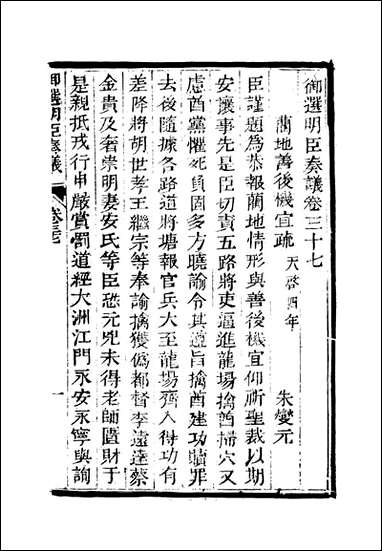 御選明臣奏議卷三十七
藺地善後機宜疏 天啓四年 朱燮元
臣謹題為恭報藺地情形與善後機宜仰祈聖裁以期
安攘事先是臣切責五路將吏逼進龍場擒酋掃穴又
慮酋黨懼死負固多方曉諭令其遵旨擒酋建功贖罪
去後隨據各路道將塘報官兵大至龍場齊入得功有
差降將胡世孝王繼宗等奉諭擒獲僞都督李遠逵蔡
金貴及奢崇明妻安氏等臣恐元兇未得老師匱財于
是親抵戎行申嚴賞罰道經大洲江門永安永寧與詢
御選明臣奏議 卷三七 一